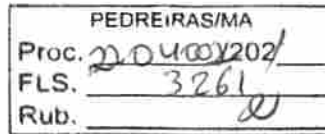 PEDREIRAS/MA
Proc. 2204001/2021
FLS. 3261
Rub.